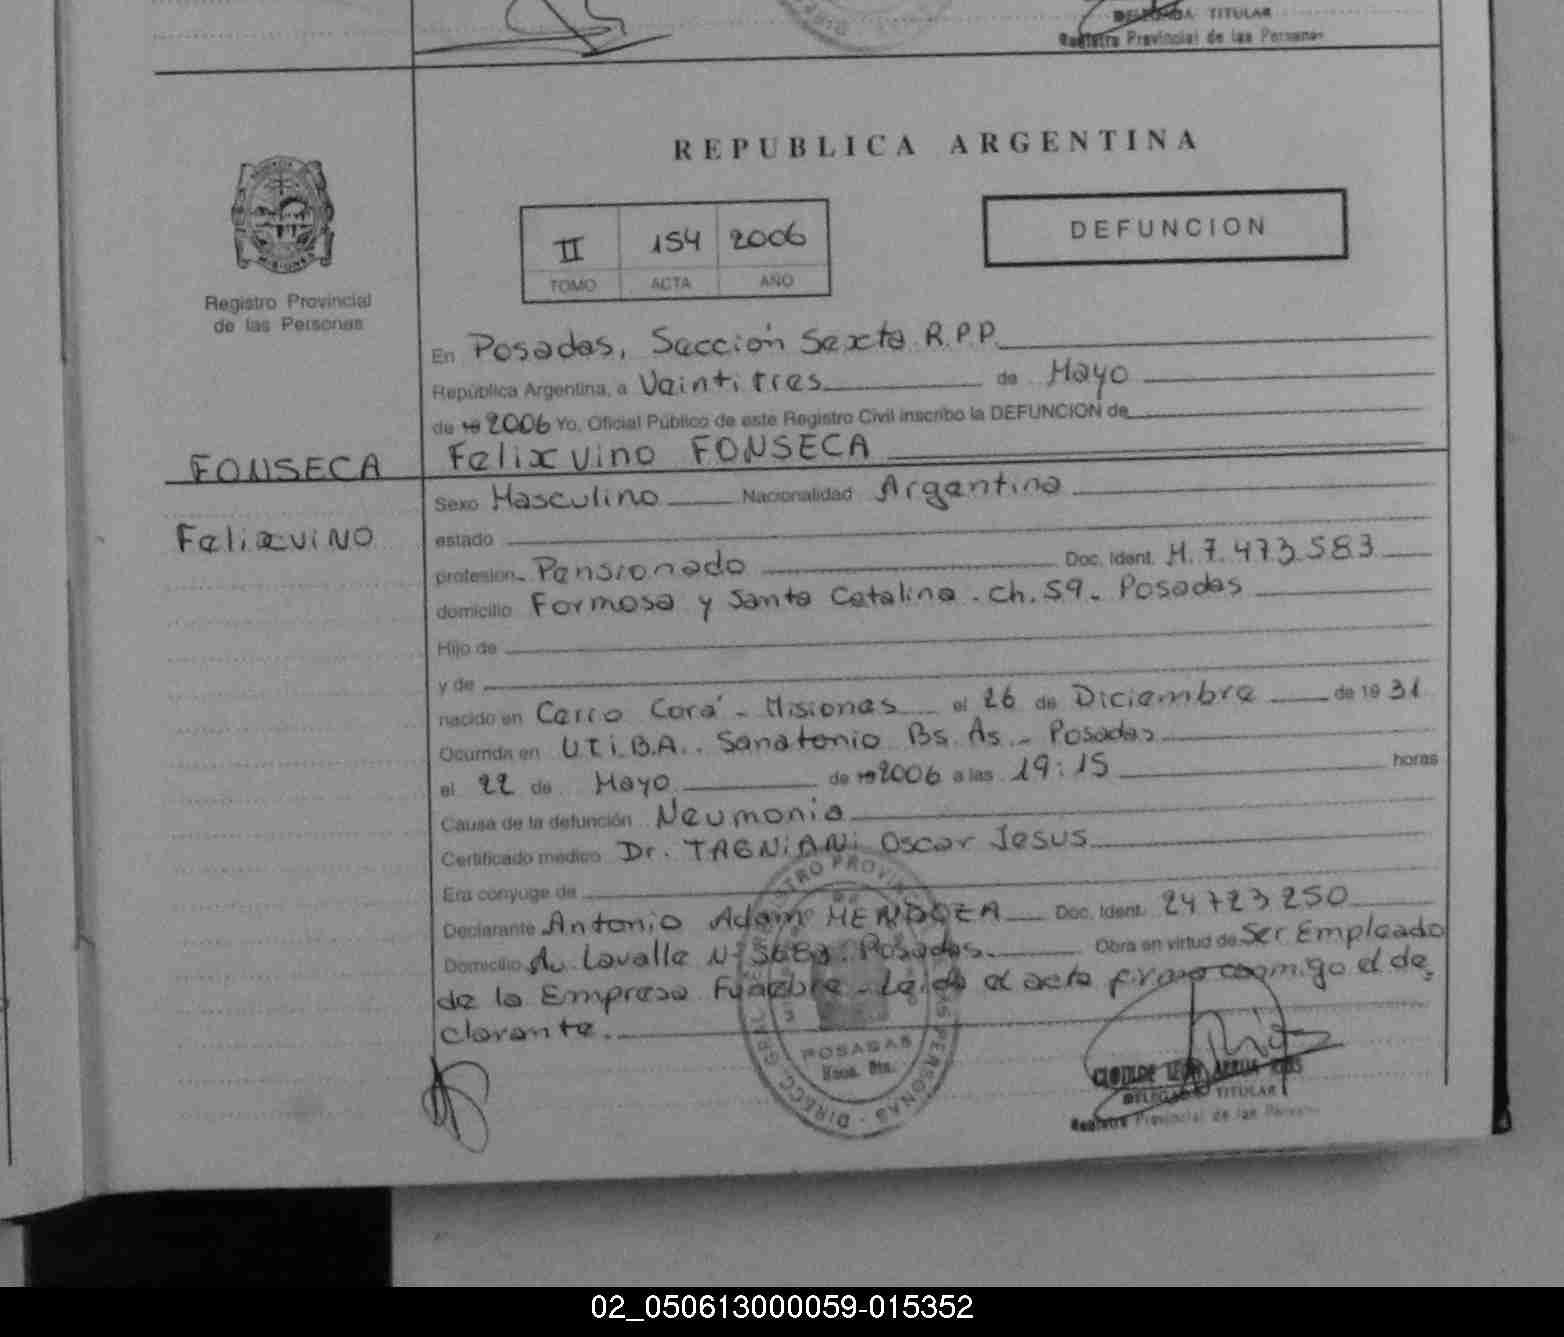 DELEGADA TITULAR
Registro Provincial de las Personas
REPUBLICA ARGENTINA
II 154 2006
TOMO ACTA AÑO
DEFUNCION
Registro Provincial
de las Personas
En Posadas, Sección Sexta R.P.P.
República Argentina, a Veintitres de Mayo
de 19 2006 Yo, Oficial Público de este Registro Civil inscribo la DEFUNCION de
Felixvino FONSECA
FONSECA
Felixvino
Sexo Masculino Nacionalidad Argentina
estado
profesion Pensionado Doc. Ident. M. 7.473.583
domicilio Formosa y Santa Catalina - Ch. 59 - Posadas
Hijo de
y de
nacido en Cerro Corá - Misiones el 26 de Diciembre de 19 31
Ocurrida en U.T.i.B.A. Sanatorio Bs. As. - Posadas
el 22 de Mayo de 19 2006 a las 19:15 horas
Causa de la defunción Neumonia
Certificado médico Dr. TAGNiANi Oscar Jesus
Era conyuge de
Declarante Antonio Adam MENDOZA Doc. Ident. 24723250
Domicilio Av. Lavalle Posadas Obra en virtud de Ser Empleado
de la Empresa Fúnebre - Leida el acta firma conmigo el de-
clarante.
POSADAS
CLOTILDE
DELEGADA TITULAR
Registro Provincial de las Personas
02_050613000059-015352